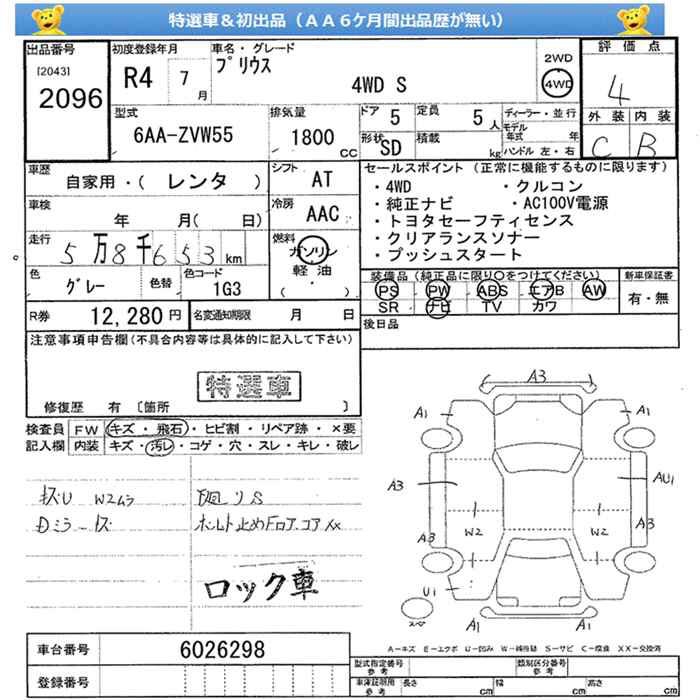 特選車&初出品（ＡＡ６ケ月間出品歴が無い）
出品番号
[2043]
2096
初度登録年月
R4 7月
車名・グレード
プリウス
4WD S
2WD
4WD
評価点
4
外装 内装
C B
型式
6AA-ZVW55
排気量
1800cc
ドア 5
定員 5人
形状 SD
積載 kg
ディーラー・並行
モデル年式 年
ハンドル 左・右
車歴
自家用・( レンタ )
シフト
AT
車検
年 月( 日)
冷房
AAC
走行
5万8千653km
燃料
ガソリン
軽油
( )
色
グレー
色替
色コード
1G3
R券
12,280円
名変通知期限 月 日
セールスポイント（正常に機能するものに限ります）
・4WD ・クルコン
・純正ナビ ・AC100V電源
・トヨタセーフティセンス
・クリアランスソナー
・プッシュスタート
装備品（純正品に限り〇をつけてください）
PS PW ABS エアB AW
SR ナビ TV カワ
新車保証書
有・無
後日品
注意事項申告欄(不具合内容等は具体的に記入して下さい)
特選車
修復歴 有 〔箇所 〕
検査員
記入欄
FW キズ・飛石・ヒビ割・リペア跡・×要
内装 キズ・汚レ・コゲ・穴・スレ・キレ・破レ
W2ムラ
Dミラーキズ
下廻りS
ボルト止めFロア.コア
ロック車
A3
A1 A1
A3 AU1
W2 W2
A3 A3
U1
A1 A1
スペア
A-キズ E-エクボ U-凹み W-補修跡 S-サビ C-腐食 XX-交換済
車台番号
6026298
登録番号
型式指定番号
参考
類別区分番号
参考
車庫証明用
参考
長さ cm 幅 cm 高さ cm